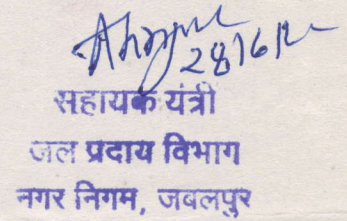 28/6/12
सहायक यंत्री
जल प्रदाय विभाग
नगर निगम, जबलपुर